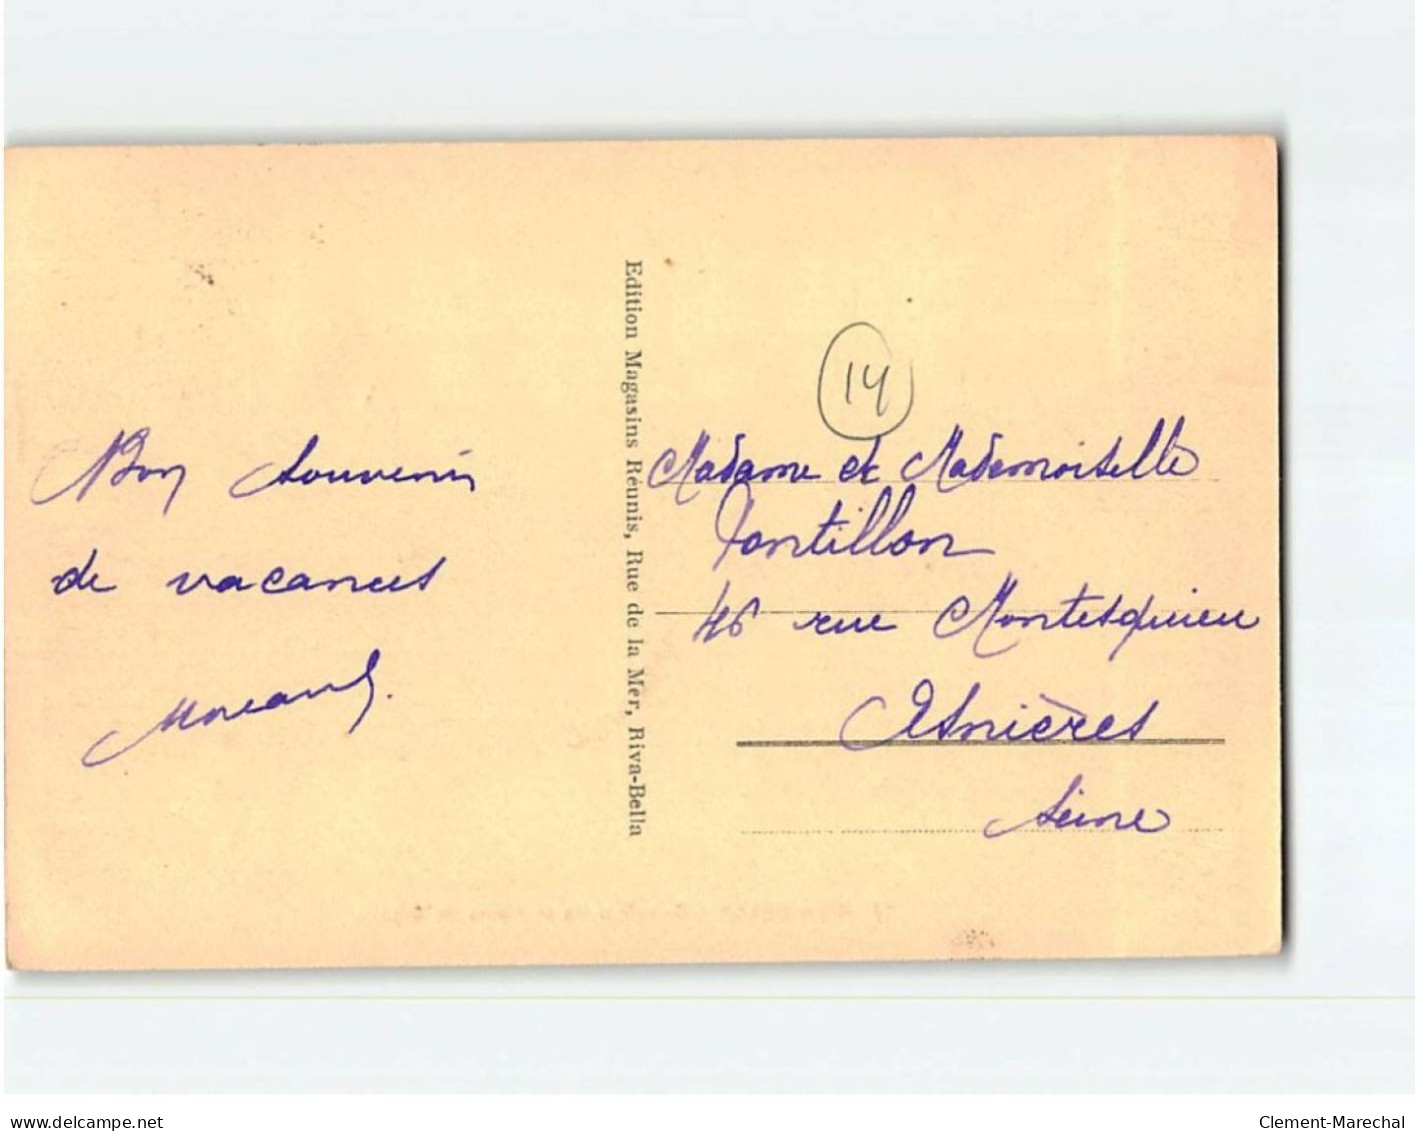 Bon souvenir
de vacances
Edition Magasins Réunis, Rue de la Mer, Riva-Bella
14
Madame et Mademoiselle
Tontillon
46 rue Montesquieu
Asnières
Seine
www.delcampe.net
Clement-Marechal